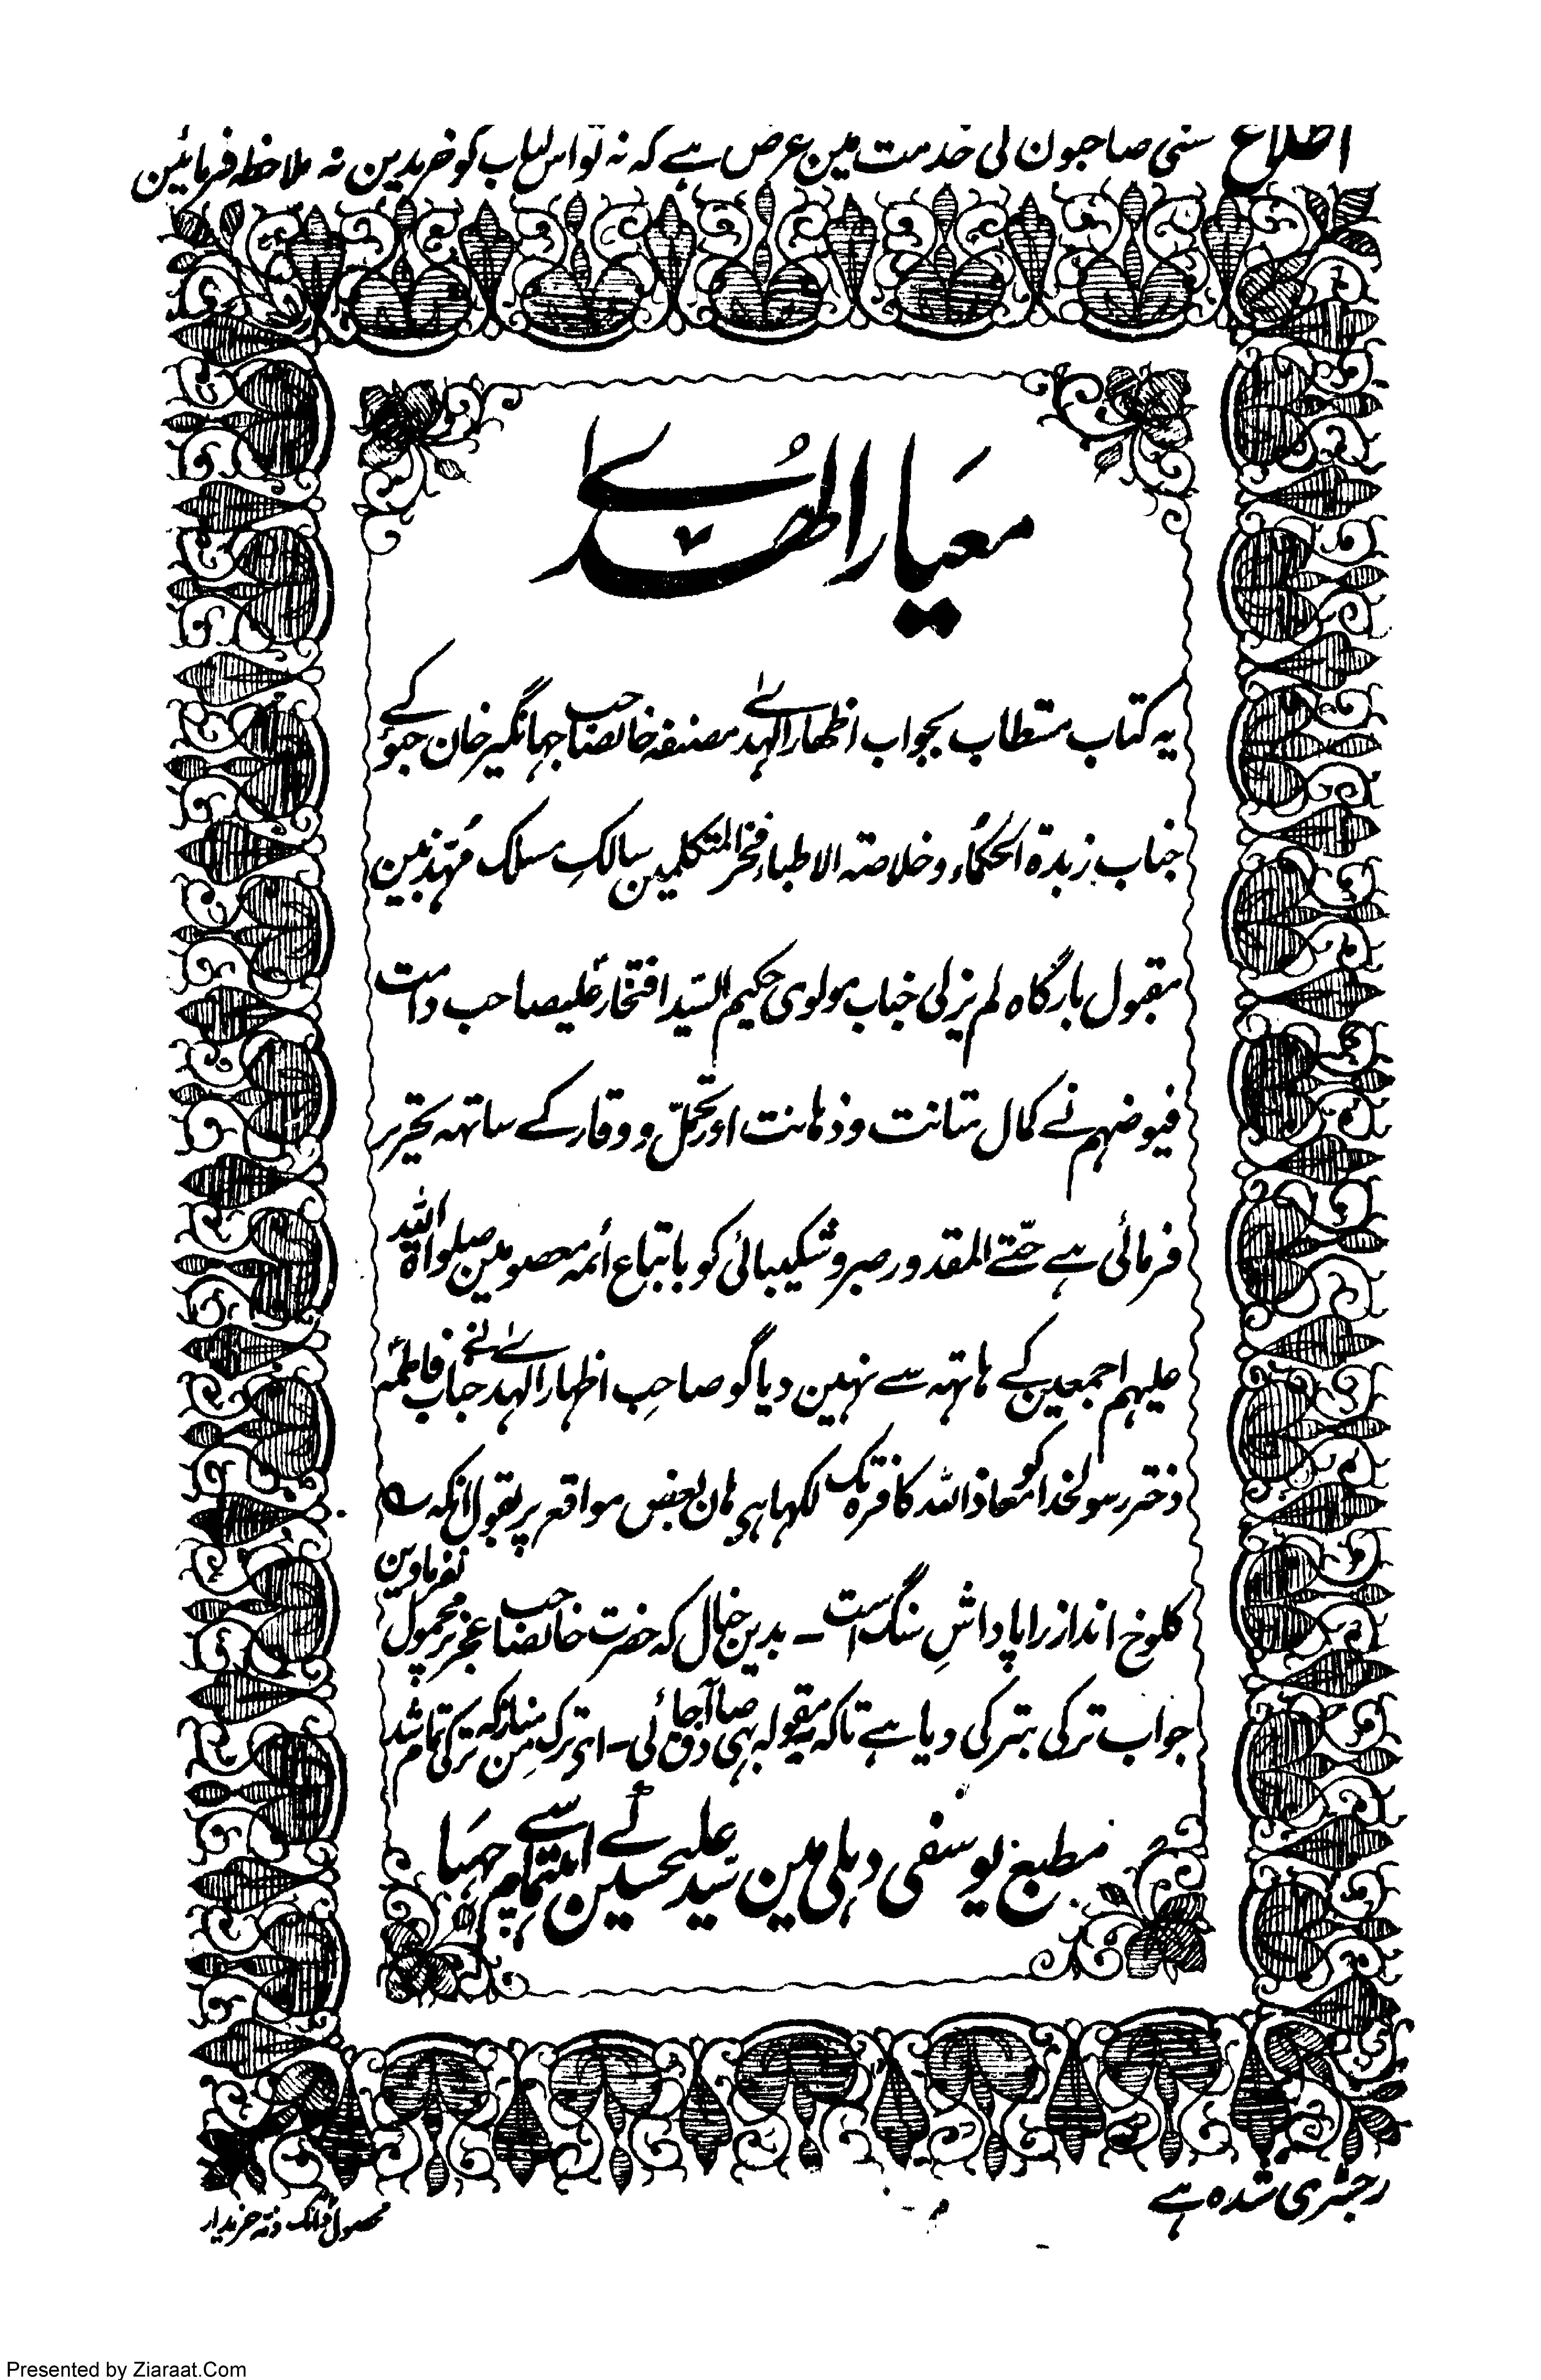 اطلاع سنی صاحبون کی خدمت مین عرض ہے کہ نہ تو اس کتاب کو خریدین نہ ملاحظہ فرمائین
معیار الھُدےٰ
یہ کتاب مستطاب بجواب اظہار الہدےٰ مصنفہ خانصاحب جہانگیر خان جیؤ کے
جناب زبدۃ الحکماُء و خلاصتہ الاطباء فخر المتکلمین سالکِ مسلک مُہذبین
مقبول بارگاہ لم یزلی جناب مولوی حکیم السّید افتخار علیصاحب دامت
فیوضہم نے کمال متانت و ذہانت اور تحمّل و وقار کے ساتہہ تحریر
فرمائی ہے حتّے المقدور صبر و شکیبائی کو باتباع ائمہ معصومین صلواۃ اللہ
علیہم اجمعین کے ہاتہہ سے نہین دیا گو صاحبِ اظہار الہدےٰ نے جناب فاطمہ
دختر رسولخدا کو معاذ اللہ کافرہ تک لکہا ہی ہان بعض مواقع پر بقول انکہ ؎
کلوخ انداز را پاداشِ سنگ است ـ بدین خیال کہ حضرت خانصاحب عجز پر محمول نفرماوین
جواب ترکی بترکی دیا ہے تاکہ یہ مقولہ بہی صادق آجائی ـ ای ترک مناز کہ من ترکی تمام شد
مطبع یوسفی دہلی مین سید علیحسین کے اہتمام سے چہپا
رجسٹری شدہ ہے
محصول ڈانک ذمہ خریدار
Presented by Ziaraat.Com